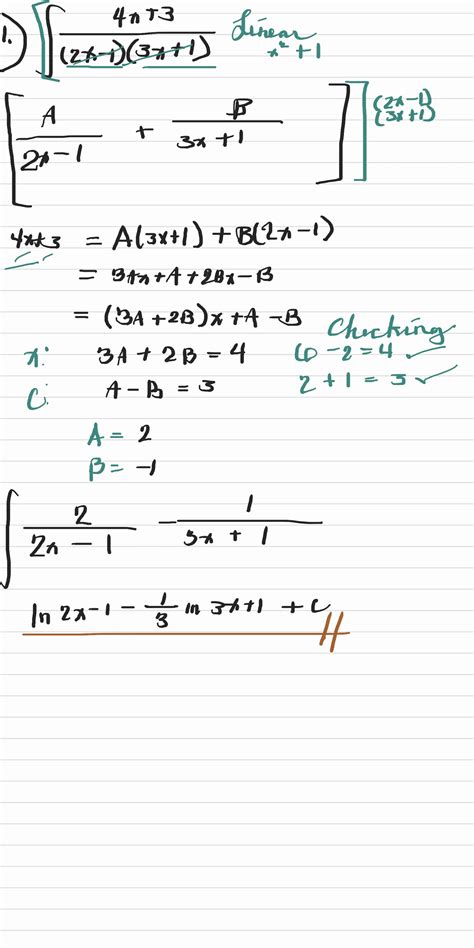 1. ∫ 4x+3 / (2x-1)(3x+1) Linear
x² + 1
[ A / 2x-1 + B / 3x+1 ] (2x-1)
(3x+1)
4x+3 = A(3x+1) + B(2x-1)
= 3Ax+A+2Bx-B
= (3A+2B)x+A-B
Checking
x: 3A+2B=4 6-2=4 ✓
C: A-B=3 2+1=3 ✓
A= 2
B= -1
∫ 2 / 2x-1 - 1 / 3x+1
ln 2x-1 - 1/3 ln 3x+1 + C //